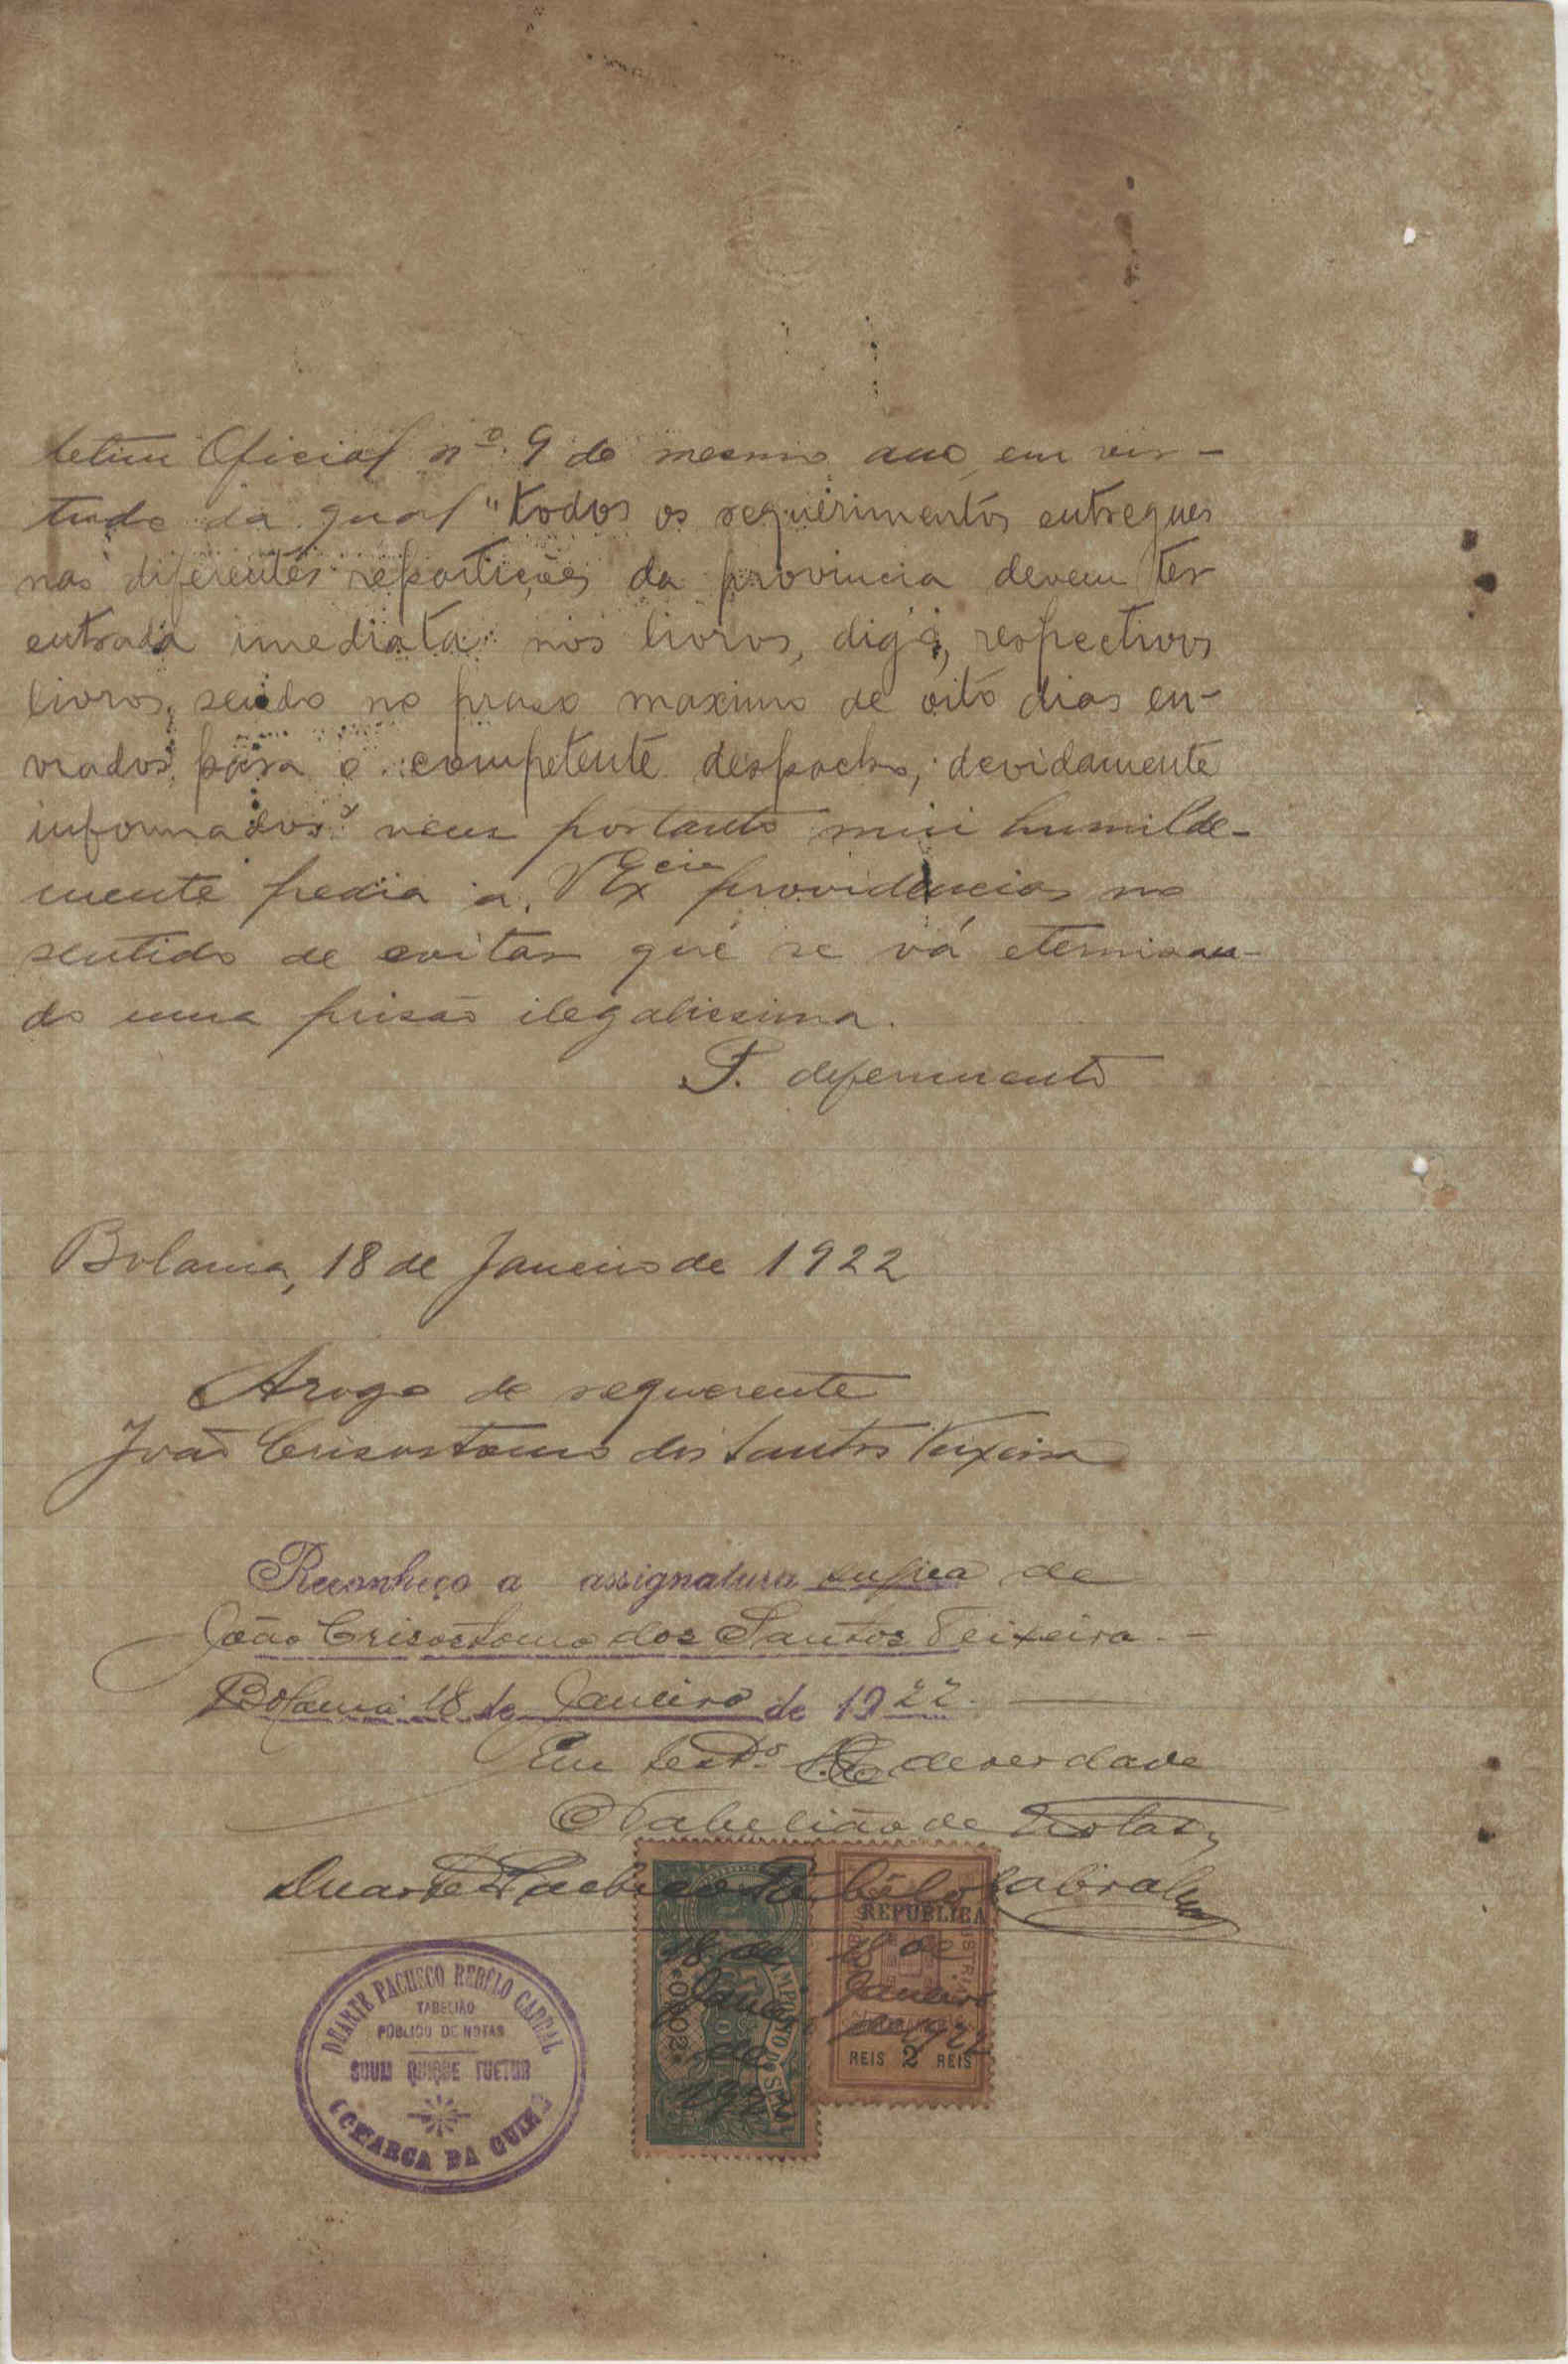 letim Oficial nº. 9 do mesmo ano, em vir-
tude da qual "todos os requerimentos entregues
nas diferentes repartições da provincia devem ter
entrada imediata nos livros, digo, respectivos
livros, sendo no praso maximo de oito dias en-
viados para o competente despacho, devidamente
informados" vem portanto mui humilde-
mente pedir a VExcia providencias no
sentido de evitar que se vá eternisan-
do uma prisão ilegalissima.
P. deferimento
Bolama, 18 de Janeiro de 1922
Arogo do requerente
João Crisostomo dos Santos Teixeira
Reconheço a assignatura supra de
João Crisostomo dos Santos Teixeira. -
Bolama 18 de Janeiro de 1922.
Em testº de verdade
O Tabelião de Notas,
Duarte Pacheco Rebêlo Cabral
REPUBLICA
18 de
Janeiro
de
192
18 de
Janeiro
de 1922
IMPOSTO DO SELO
REIS 2 REIS
DUARTE PACHECO REBÊLO CABRAL
TABELIÃO
PUBLICO DE NOTAS
SUUM QUIQUE TUETUR
COMARCA DA GUINÉ